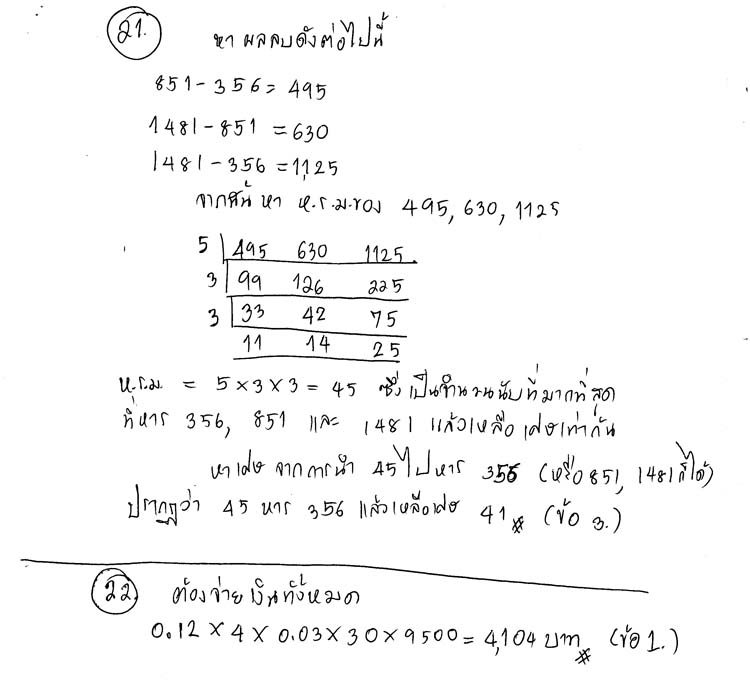 21. หาผลลบดังต่อไปนี้
851 - 356 = 495
1481 - 851 = 630
1481 - 356 = 1,125
จากนั้น หา ห.ร.ม. ของ 495, 630, 1125
5 495 630 1125
3 99 126 225
3 33 42 75
11 14 25
ห.ร.ม. = 5 × 3 × 3 = 45 ซึ่งเป็นจำนวนนับที่มากที่สุด
ที่หาร 356, 851 และ 1481 แล้วเหลือเศษเท่ากัน
หาเศษ จากการนำ 45 ไปหาร 356 (หรือ 851, 1481 ก็ได้)
ปรากฏว่า 45 หาร 356 แล้วเหลือเศษ 41 # (ข้อ 3.)
22. ต้องจ่ายเงินทั้งหมด
0.12 × 4 × 0.03 × 30 × 9500 = 4,104 บาท # (ข้อ 1.)